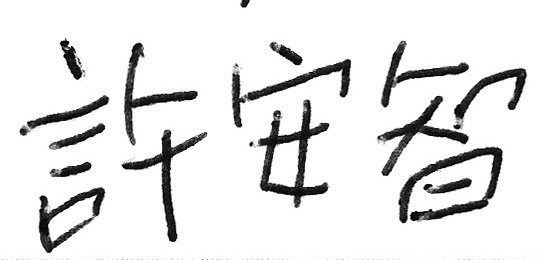 許安智